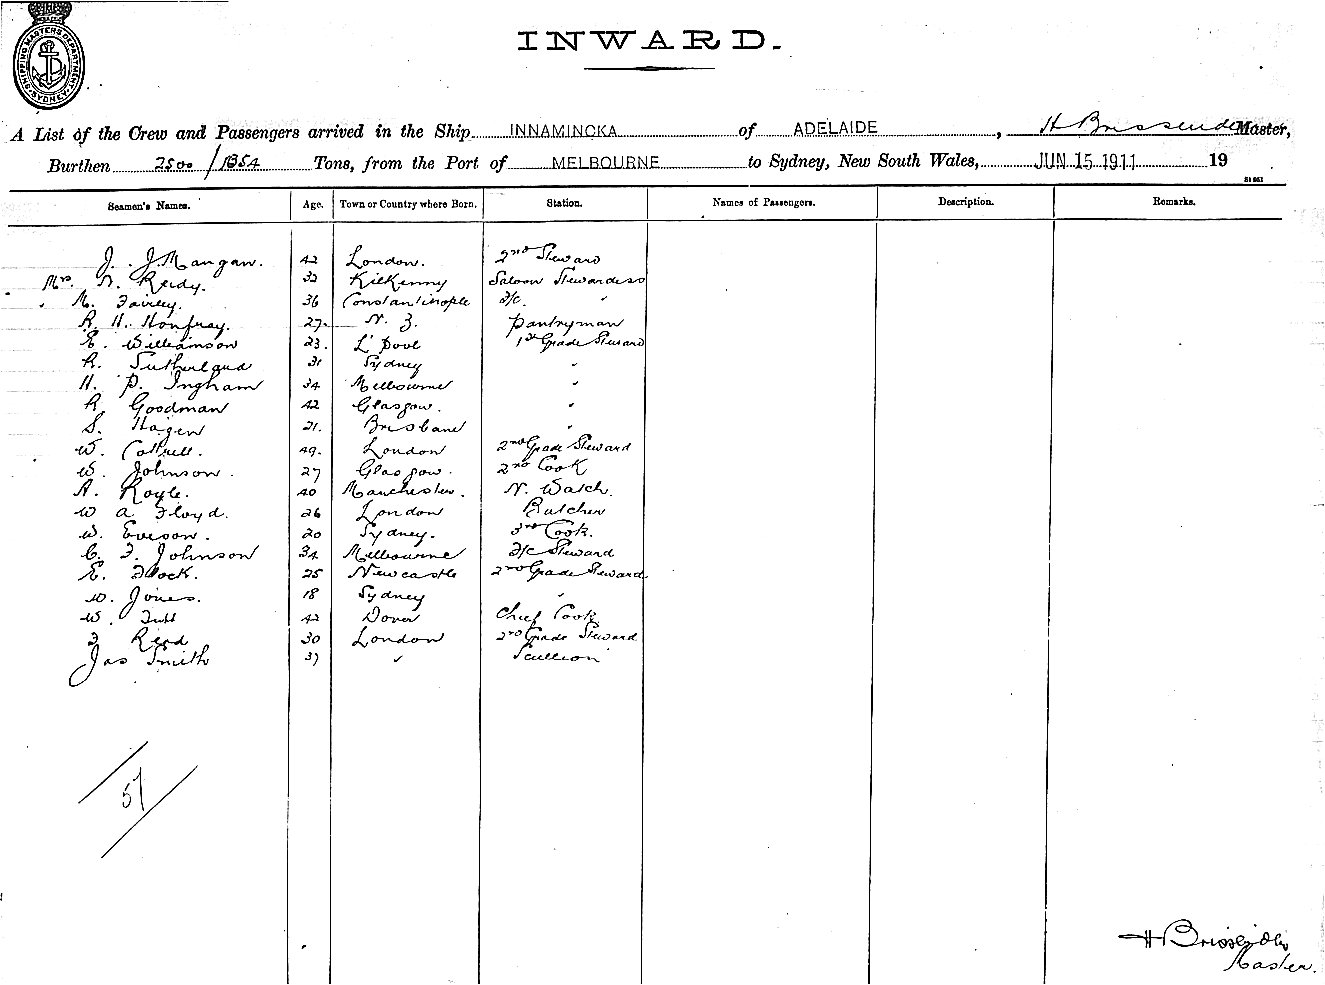 SHIPPING MASTERS DEPARTMENT
SYDNEY
INWARD.
A List of the Crew and Passengers arrived in the Ship INNAMINCKA of ADELAIDE, H Brissenden Master,
Burthen 2500/1354 Tons, from the Port of MELBOURNE to Sydney, New South Wales, JUN 15 1911 19
Seamen's Names. Age. Town or Country where Born. Station. Names of Passengers. Description. Remarks.
J. J Mangan. 42 London. 2nd Steward
Mrs. Reidy. 32 Kilkenny Saloon Stewardess
M. Fairley. 36 Constantinople 3/c. "
R. H. Honfray. 27. N. Z. Pantryman
E. Williamson 23. L'pool 1st Grade Steward
R. Sutherland 31 Sydney "
H. P. Ingham 34 Melbourne "
R. Goodman 42 Glasgow. "
S. Hagen 21. Brisbane "
W. Cottrell. 49. London 2nd Grade Steward
W. Johnson. 27 Glasgow. 2nd Cook
A. Royle. 40 Manchester. N. Watch.
W A Floyd. 26 London Butcher
W. Everson. 20 Sydney. 3rd Cook.
C. F. Johnson 34 Melbourne 3/c Steward
E. Flock. 25 Newcastle 2nd Grade Steward
W. Jones. 18 Sydney "
W. 42 Dover Chief Cook
F Reid 30 London 2nd Grade Steward
Jas Smith 37 " Scullion
57
H Brissenden
Master.